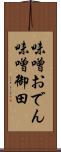 味噌おでん
味噌御田